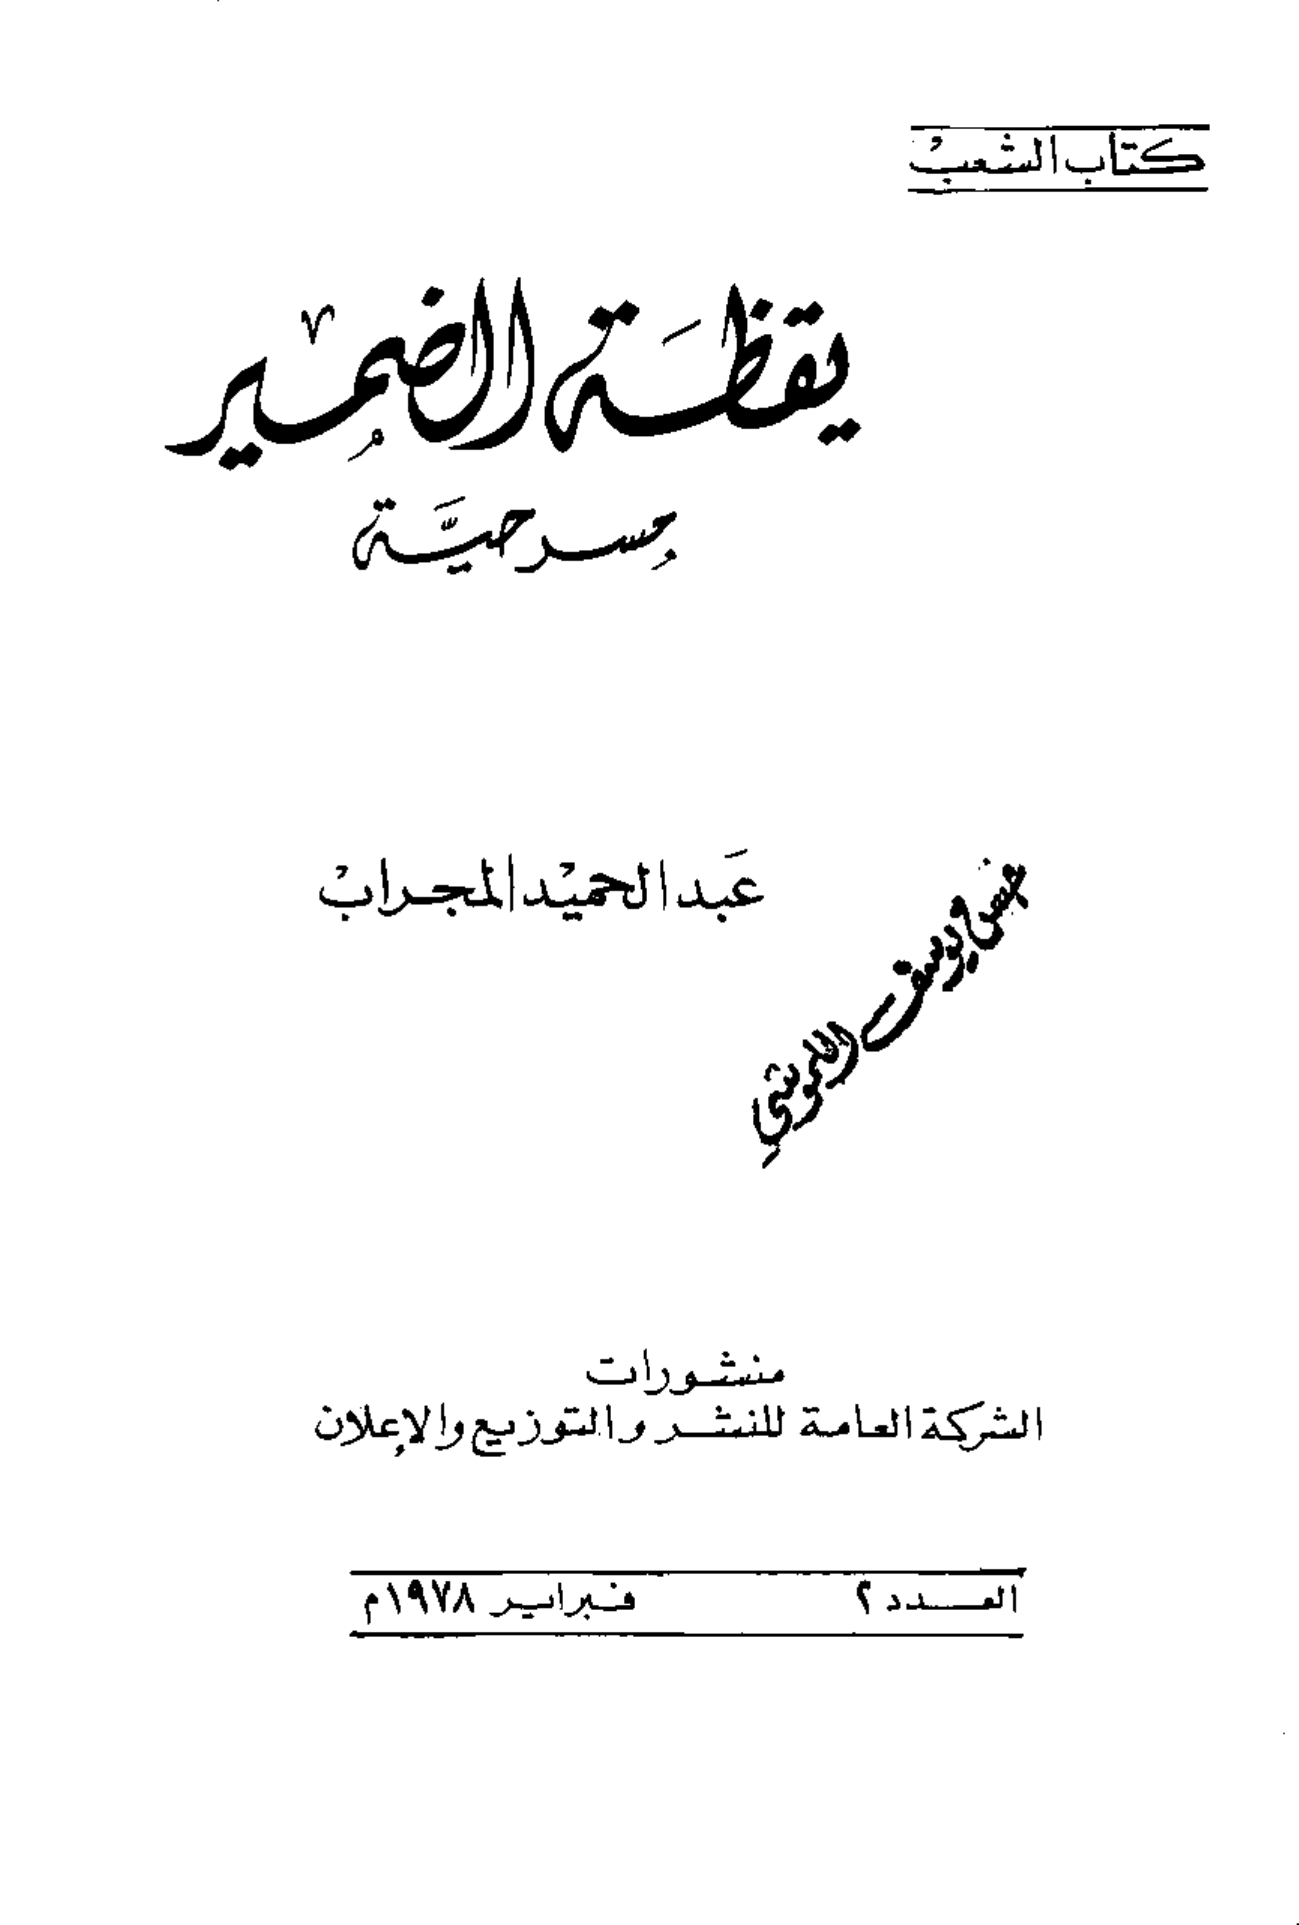 كتاب الشعب
يقظة الضمير
مسرحية
عبد الحميد المجراب
يوسف
منشورات
الشركة العامة للنشر والتوزيع والإعلان
العدد ٢ فبراير ١٩٧٨م